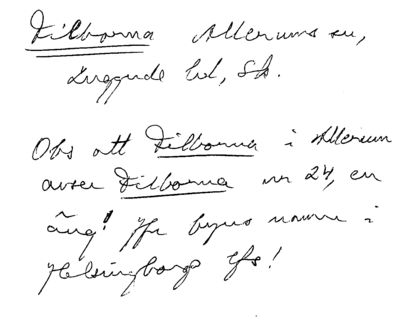 Filborna Allerums sn,
Luggude hd, Sk.
Obs att Filborna i Allerum
avser Filborna nr 24, en
äng! Jfr byns namn i
Helsingborgs lfs!